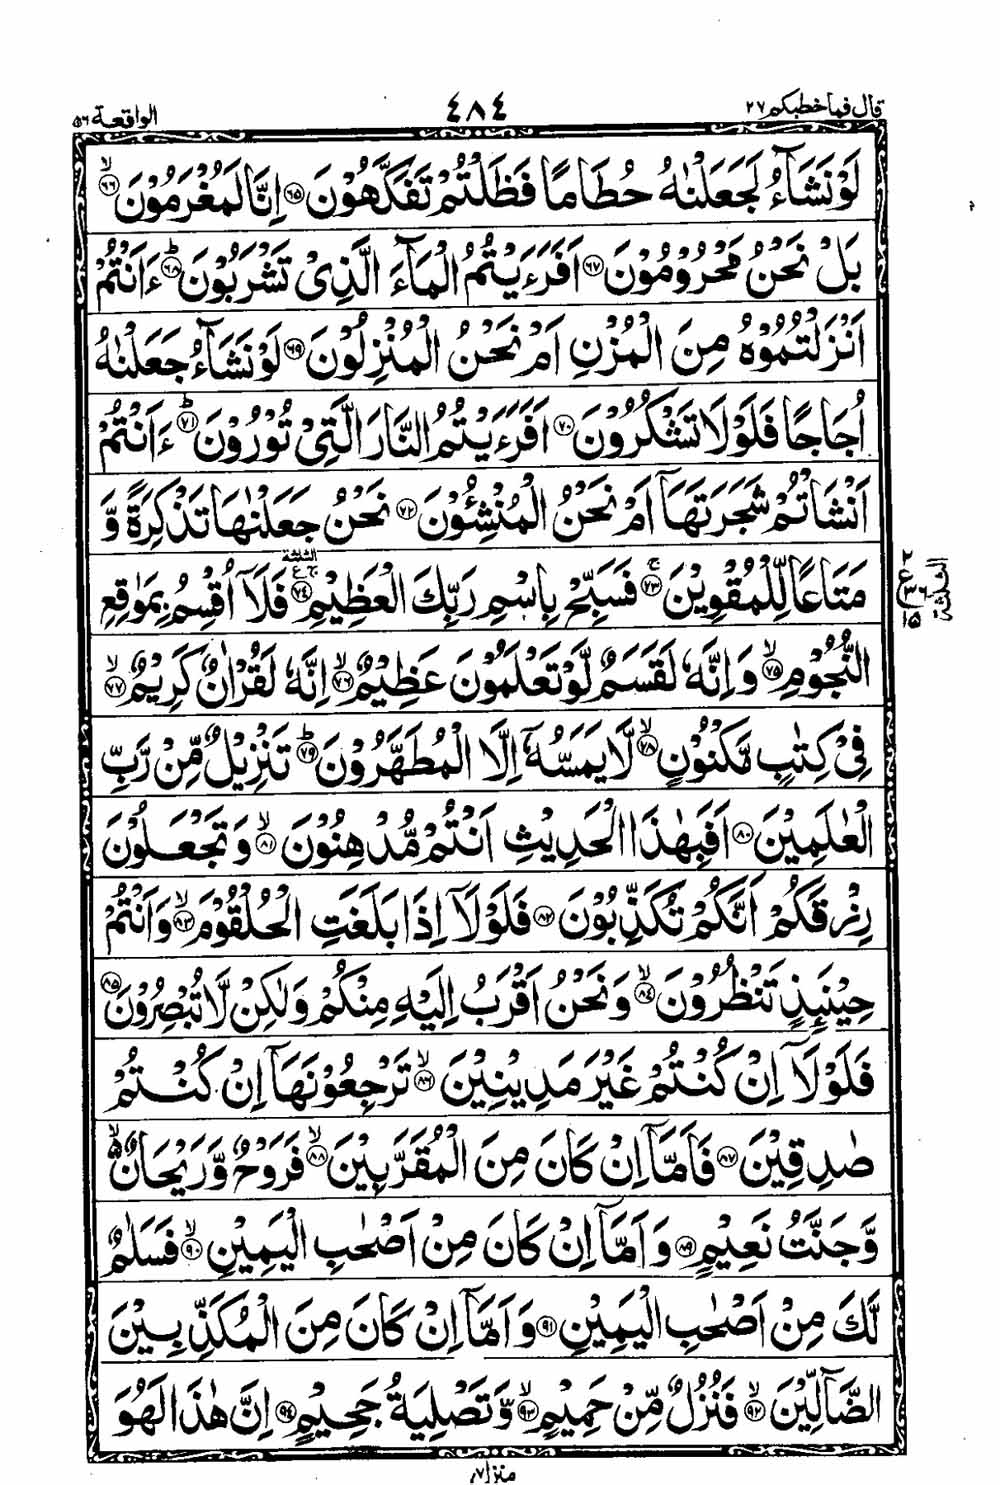 قال فما خطبكم ٢٧
٤٨٤
الواقعة ٥٦
لَوْ نَشَآءُ لَجَعَلْنٰهُ حُطَامًا فَظَلْتُمْ تَفَكَّهُوْنَ ﴿٦٥﴾ اِنَّا لَمُغْرَمُوْنَ ﴿٦٦﴾ۙ
بَلْ نَحْنُ مَحْرُوْمُوْنَ ﴿٦٧﴾ اَفَرَءَيْتُمُ الْمَآءَ الَّذِيْ تَشْرَبُوْنَ ﴿٦٨﴾ؕ ءَاَنْتُمْ
اَنْزَلْتُمُوْهُ مِنَ الْمُزْنِ اَمْ نَحْنُ الْمُنْزِلُوْنَ ﴿٦٩﴾ لَوْ نَشَآءُ جَعَلْنٰهُ
اُجَاجًا فَلَوْلَا تَشْكُرُوْنَ ﴿٧٠﴾ اَفَرَءَيْتُمُ النَّارَ الَّتِيْ تُوْرُوْنَ ﴿٧١﴾ؕ ءَاَنْتُمْ
اَنْشَاْتُمْ شَجَرَتَهَآ اَمْ نَحْنُ الْمُنْشِـُٔوْنَ ﴿٧٢﴾ نَحْنُ جَعَلْنٰهَا تَذْكِرَةً وَّ
مَتَاعًا لِّلْمُقْوِيْنَ ﴿٧٣﴾ۚ فَسَبِّحْ بِاسْمِ رَبِّكَ الْعَظِيْمِ ﴿٧٤﴾ فَلَآ اُقْسِمُ بِمَوٰقِعِ
النُّجُوْمِ ﴿٧٥﴾ۙ وَاِنَّهٗ لَقَسَمٌ لَّوْ تَعْلَمُوْنَ عَظِيْمٌ ﴿٧٦﴾ۙ اِنَّهٗ لَقُرْاٰنٌ كَرِيْمٌ ﴿٧٧﴾ۙ
فِيْ كِتٰبٍ مَّكْنُوْنٍ ﴿٧٨﴾ۙ لَّا يَمَسُّهٗٓ اِلَّا الْمُطَهَّرُوْنَ ﴿٧٩﴾ؕ تَنْزِيْلٌ مِّنْ رَّبِّ
الْعٰلَمِيْنَ ﴿٨٠﴾ اَفَبِهٰذَا الْحَدِيْثِ اَنْتُمْ مُّدْهِنُوْنَ ﴿٨١﴾ۙ وَتَجْعَلُوْنَ
رِزْقَكُمْ اَنَّكُمْ تُكَذِّبُوْنَ ﴿٨٢﴾ فَلَوْلَآ اِذَا بَلَغَتِ الْحُلْقُوْمَ ﴿٨٣﴾ۙ وَاَنْتُمْ
حِيْنَىِٕذٍ تَنْظُرُوْنَ ﴿٨٤﴾ۙ وَنَحْنُ اَقْرَبُ اِلَيْهِ مِنْكُمْ وَلٰكِنْ لَّا تُبْصِرُوْنَ ﴿٨٥﴾
فَلَوْلَآ اِنْ كُنْتُمْ غَيْرَ مَدِيْنِيْنَ ﴿٨٦﴾ۙ تَرْجِعُوْنَهَآ اِنْ كُنْتُمْ
صٰدِقِيْنَ ﴿٨٧﴾ فَاَمَّآ اِنْ كَانَ مِنَ الْمُقَرَّبِيْنَ ﴿٨٨﴾ۙ فَرَوْحٌ وَّرَيْحَانٌ ۙ
وَّجَنَّتُ نَعِيْمٍ ﴿٨٩﴾ وَاَمَّآ اِنْ كَانَ مِنْ اَصْحٰبِ الْيَمِيْنِ ﴿٩٠﴾ۙ فَسَلٰمٌ
لَّكَ مِنْ اَصْحٰبِ الْيَمِيْنِ ﴿٩١﴾ وَاَمَّآ اِنْ كَانَ مِنَ الْمُكَذِّبِيْنَ
الضَّآلِّيْنَ ﴿٩٢﴾ۙ فَنُزُلٌ مِّنْ حَمِيْمٍ ﴿٩٣﴾ۙ وَّتَصْلِيَةُ جَحِيْمٍ ﴿٩٤﴾ اِنَّ هٰذَا لَهُوَ
منزل ٧